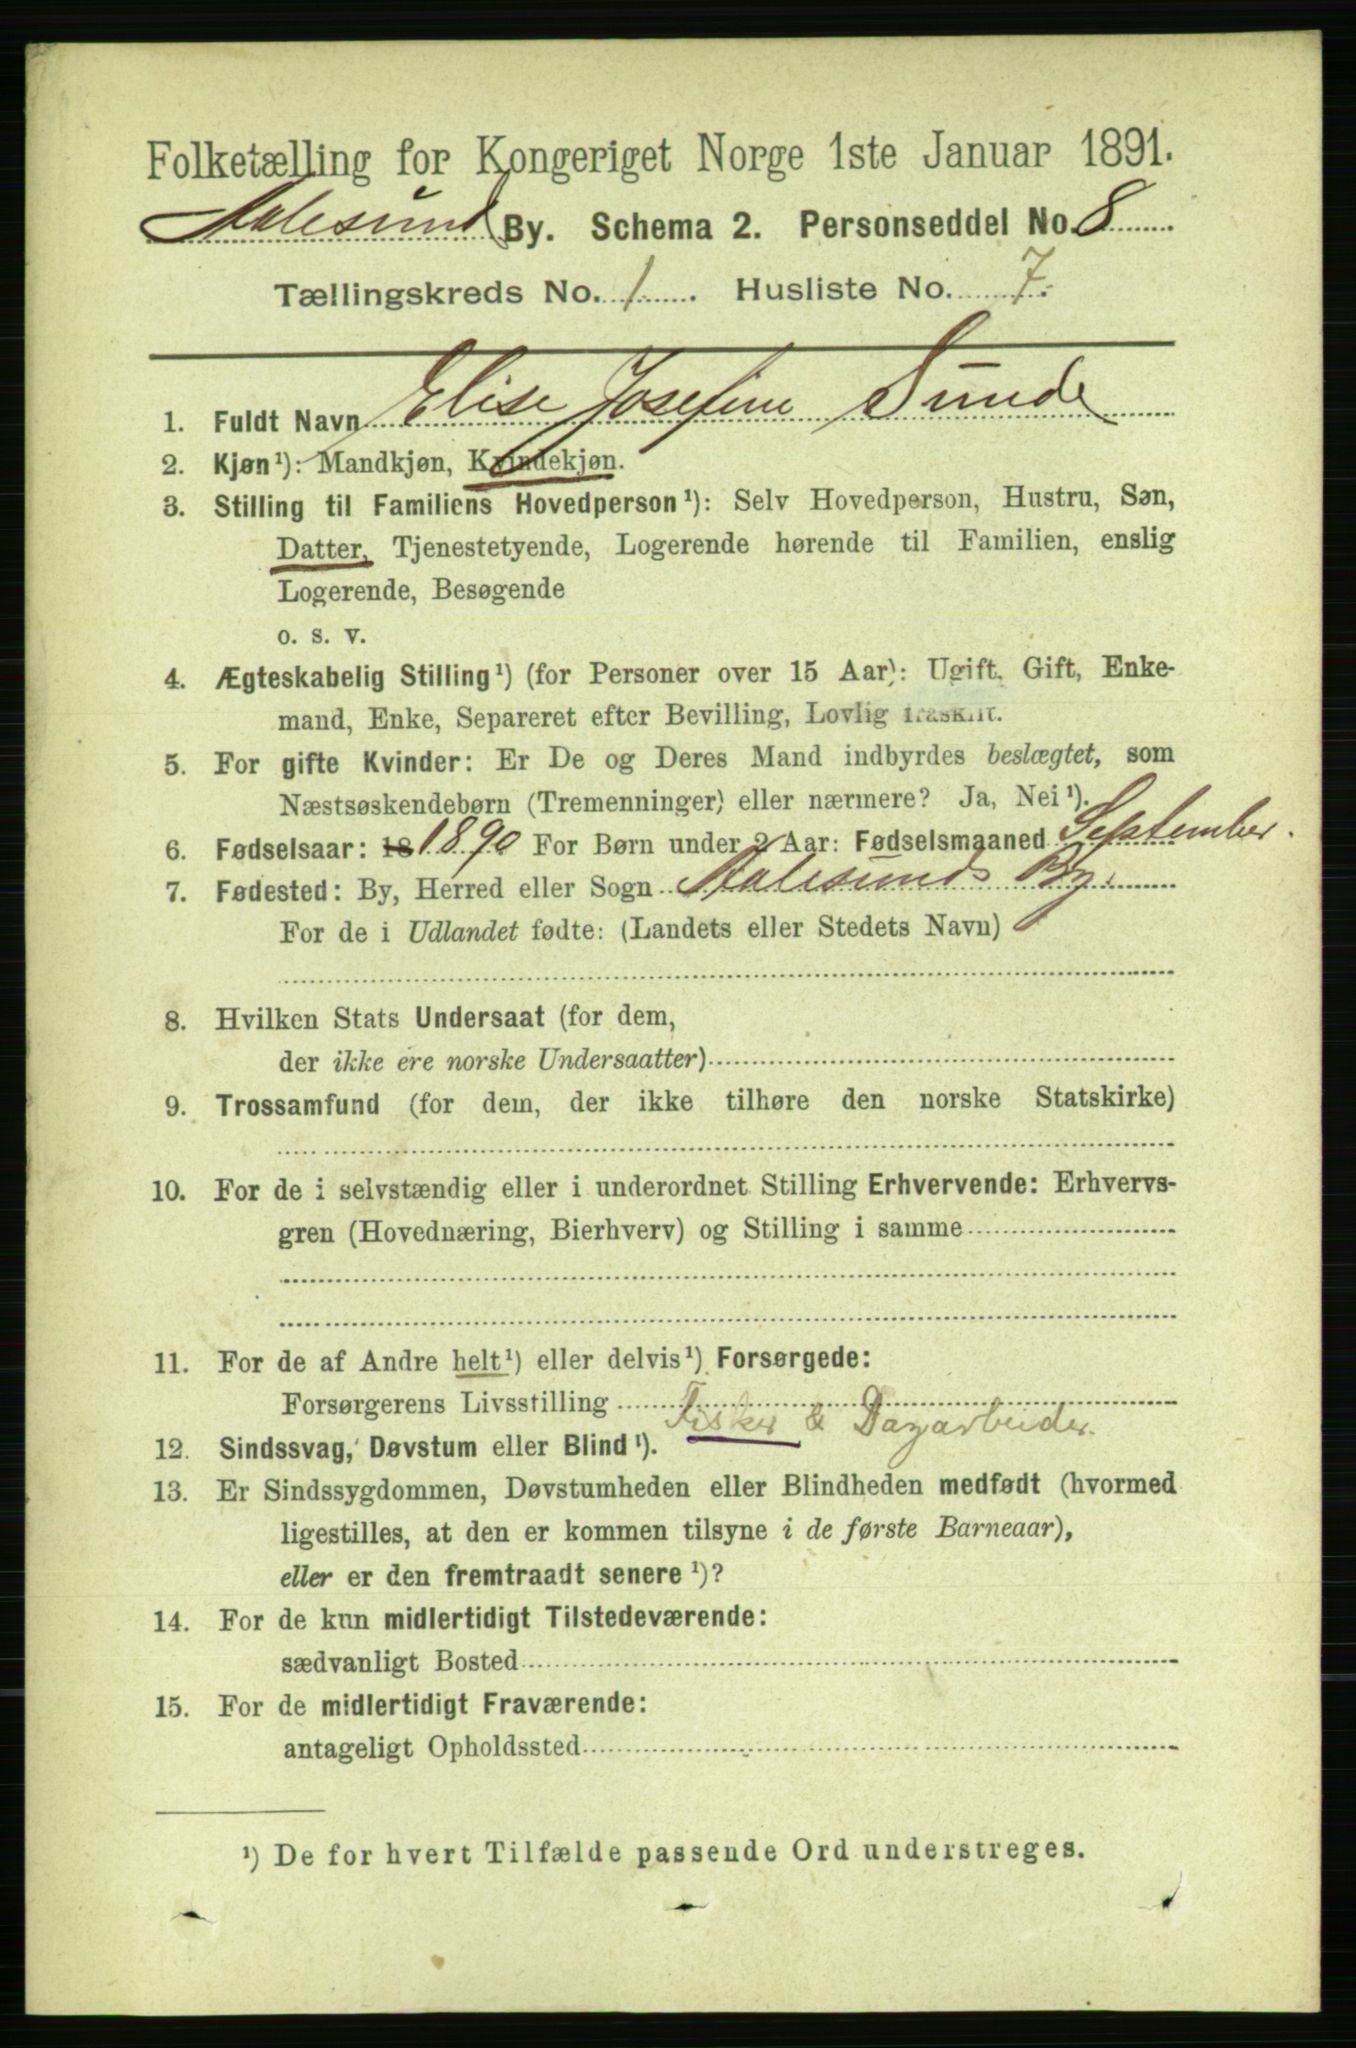 Folketælling for Kongeriget Norge 1ste Januar 1891.
Aalesund By. Schema 2. Personseddel No. 8
Tællingskreds No. 1. Husliste No. 7.
1. Fuldt Navn Elise Josefine Sunde
2. Kjøn¹): Mandkjøn, Kvindekjøn.
3. Stilling til Familiens Hovedperson¹): Selv Hovedperson, Hustru, Søn,
Datter, Tjenestetyende, Logerende hørende til Familien, enslig
Logerende, Besøgende
o. s. v.
4. Ægteskabelig Stilling¹) (for Personer over 15 Aar): Ugift, Gift, Enke-
mand, Enke, Separeret efter Bevilling, Lovlig fraskilt.
5. For gifte Kvinder: Er De og Deres Mand indbyrdes beslægtet, som
Næstsøskendebørn (Tremenninger) eller nærmere? Ja, Nei¹).
6. Fødselsaar: 18 1890 For Børn under 2 Aar: Fødselsmaaned September.
7. Fødested: By, Herred eller Sogn Aalesunds By.
For de i Udlandet fødte: (Landets eller Stedets Navn)
8. Hvilken Stats Undersaat (for dem,
der ikke ere norske Undersaatter)
9. Trossamfund (for dem, der ikke tilhøre den norske Statskirke)
10. For de i selvstændig eller i underordnet Stilling Erhvervende: Erhvervs-
gren (Hovednæring, Bierhverv) og Stilling i samme
11. For de af Andre helt¹) eller delvis¹) Forsørgede:
Forsørgerens Livsstilling Fisker & Dagarbeider.
12. Sindssvag, Døvstum eller Blind¹).
13. Er Sindssygdommen, Døvstumheden eller Blindheden medfødt (hvormed
ligestilles, at den er kommen tilsyne i de første Barneaar),
eller er den fremtraadt senere¹)?
14. For de kun midlertidigt Tilstedeværende:
sædvanligt Bosted
15. For de midlertidigt Fraværende:
antageligt Opholdssted
¹) De for hvert Tilfælde passende Ord understreges.